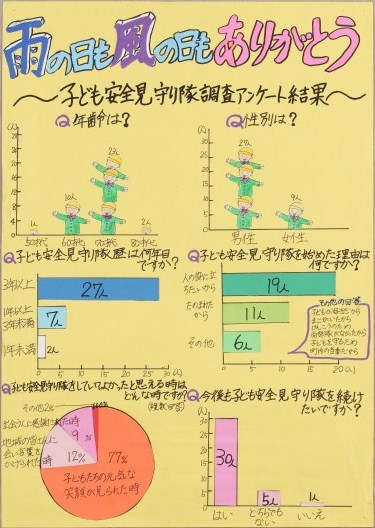 雨の日も風の日もありがとう
～子ども安全見守り隊調査アンケート結果～
Q年齢は?
(人)
25
20
15
10
5
0
1人
10人
23人
2人
50才代
60才代
70才代
80才代
Q性別は?
(人)
30
25
20
15
10
5
0
27人
9人
男性
女性
Q子ども安全見守り隊歴は何年目ですか?
3年以上
27人
1年以上
3年未満
7人
1年未満
2人
0
5
10
15
20
25
30(人)
Q子ども安全見守り隊を始めた理由は何ですか?
人の役に立
ちたいから
19人
たのまれた
から
11人
その他
6人
0
5
10
15
20(人)
その他の回答
Q子ども安全見守り隊をしていてよかったと思える時は
どんな時ですか?
(複数回答)
その他2%
100%
0
9%
地域の皆さんに
会い言葉を
かけられた時
12%
77%
子どもたちの元気な
笑顔が見られた時
Q今後も子ども安全見守り隊を続け
たいですか?
(人)
30
25
20
15
10
5
0
30人
5人
1人
はい
どちらでも
ない
いいえ